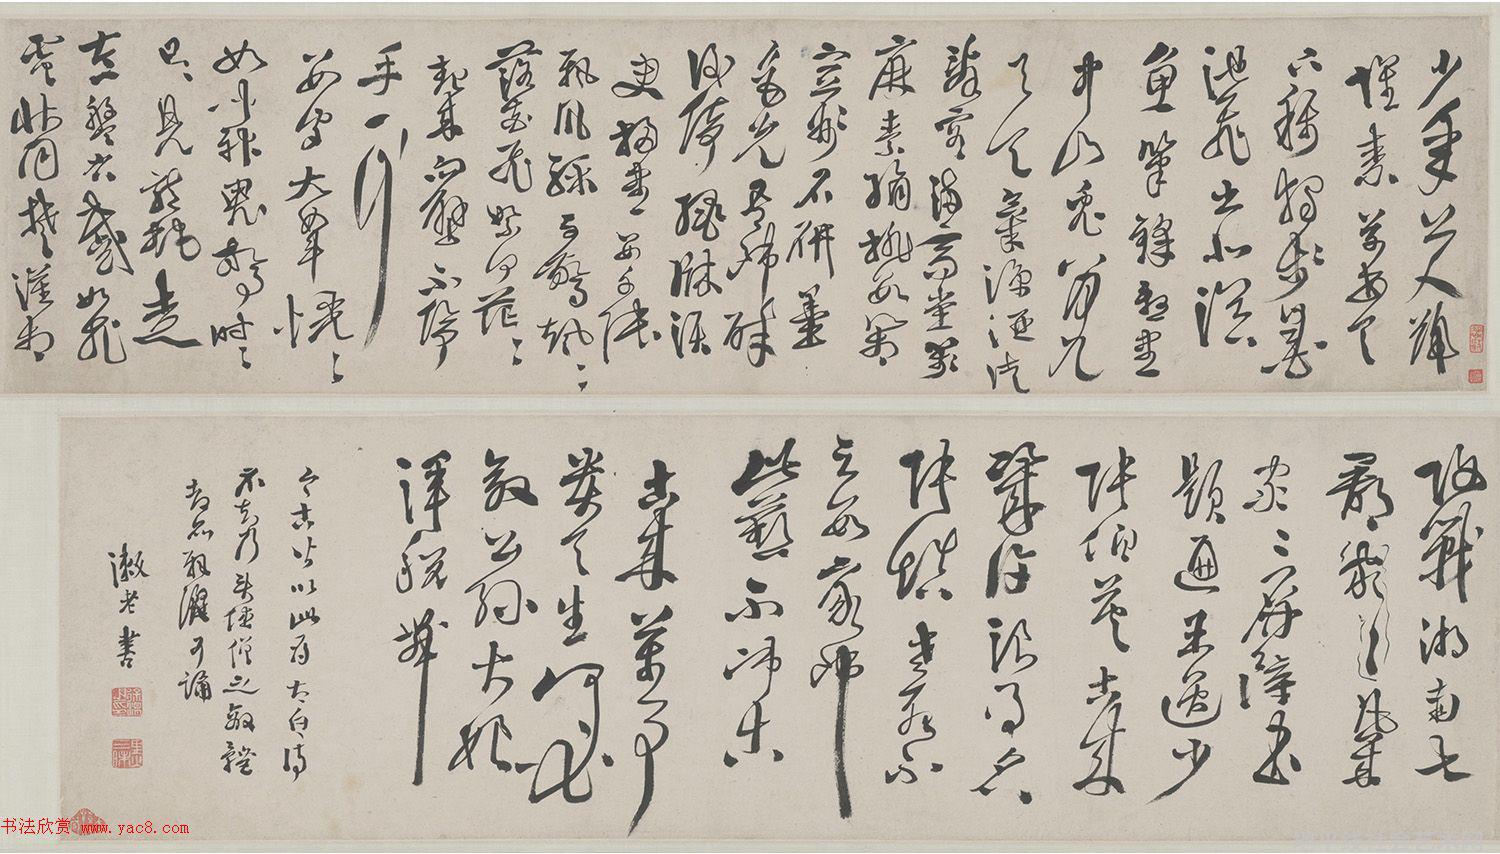 少年上人號
懷素草書天
下稱獨步墨
池飛出北溟
魚筆鋒殺盡
中山兔八月九
月天氣涼酒徒
詞客滿高堂箋
麻素絹排數箱
宣州石硯墨
色光吾師醉
後倚繩床須
臾掃盡數千張
飄風驟雨驚颯颯
落花飛雪何茫茫
起來向壁不停
手一行
數字大如斗怳怳
如聞神鬼驚時時
只見龍蛇走
左盤右蹙如飛
電狀同楚漢相
攻戰湖南七
郡
家家屏障書
題遍王逸少
張伯英古來
幾許浪得名
張顛老死不
足數我師
此藝不師古
古來萬事
貴天生何必
要公孫大娘
渾脫舞
今古皆以此為太白詩
不知乃僧之
可誦
漱老書
书法欣赏 www.yac8.com